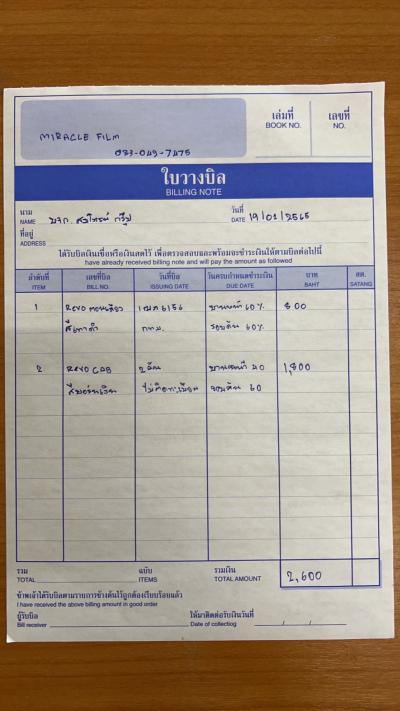 MIRACLE FILM
083-049-7475
เล่มที่ เลขที่
BOOK NO. NO.
ใบวางบิล
BILLING NOTE
นาม วันที่
NAME DATE 19/01/2565
ที่อยู่
ADDRESS
ได้รับบิลเงินเชื่อหรือเงินสดไว้ เพื่อตรวจสอบและพร้อมจะชำระเงินให้ตามบิลต่อไปนี้
have already received billing note and will pay the amount as followed
ลำดับที่ เลขที่บิล วันที่บิล วันครบกำหนดชำระเงิน บาท สต.
ITEM BILL NO. ISSUING DATE DUE DATE BAHT SATANG
1 REVO ตอนเดียว 6156 บานหน้า 60% 800
สีเทาดำ กทม. รอบคัน 60%
2 REVO CAB 2 คัน บานหน้า 40 1,800
ไม่ติดทะเบียน รอบคัน 60
รวม ฉบับ รวมเงิน
TOTAL ITEMS TOTAL AMOUNT 2,600
ข้าพเจ้าได้รับบิลตามรายการข้างต้นไว้ถูกต้องเรียบร้อยแล้ว
I have received the above billing amount in good order
ผู้รับบิล ให้มาติดต่อรับเงินวันที่
Bill receiver Date of collectiog / /